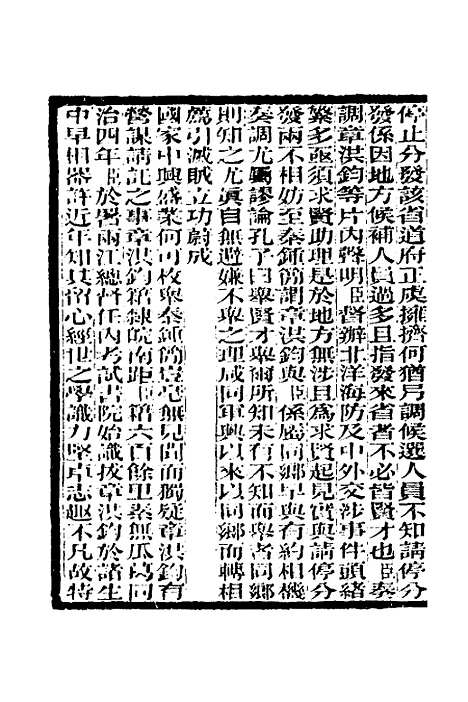 停止分發該省道府正虞擁擠何猶弓調候選人員不知請停分
發係因地方候補人員過多且指發來省者不必皆賢才也臣奏
調章洪鈞等片內聲明臣督辦北洋海防及中外交涉事件頭緒
繁多亟須求賢助理是於地方無涉且為求賢起見實與請停分
發兩不相妨至秦鍾簡謂章洪鈞與臣係屬同鄉早與有約相機
奏調尤屬謬論孔子曰舉賢才舉爾所知未有不知而舉者同鄉
則知之尤真自無避嫌不舉之理咸同軍興以來以同鄉而轉相
薦引滅賊立功蔚成
國家中興盛業何可枚舉秦鍾簡豈毫無見聞而獨疑章洪鈞有
營謀請託之事章洪鈞籍隸皖南距臣籍六百餘里素無瓜葛同
治四年臣於署兩江總督任內考試書院始識拔章洪鈞於諸生
中早相器許近年知其留心經世之學識力堅卓志趣不凡故特